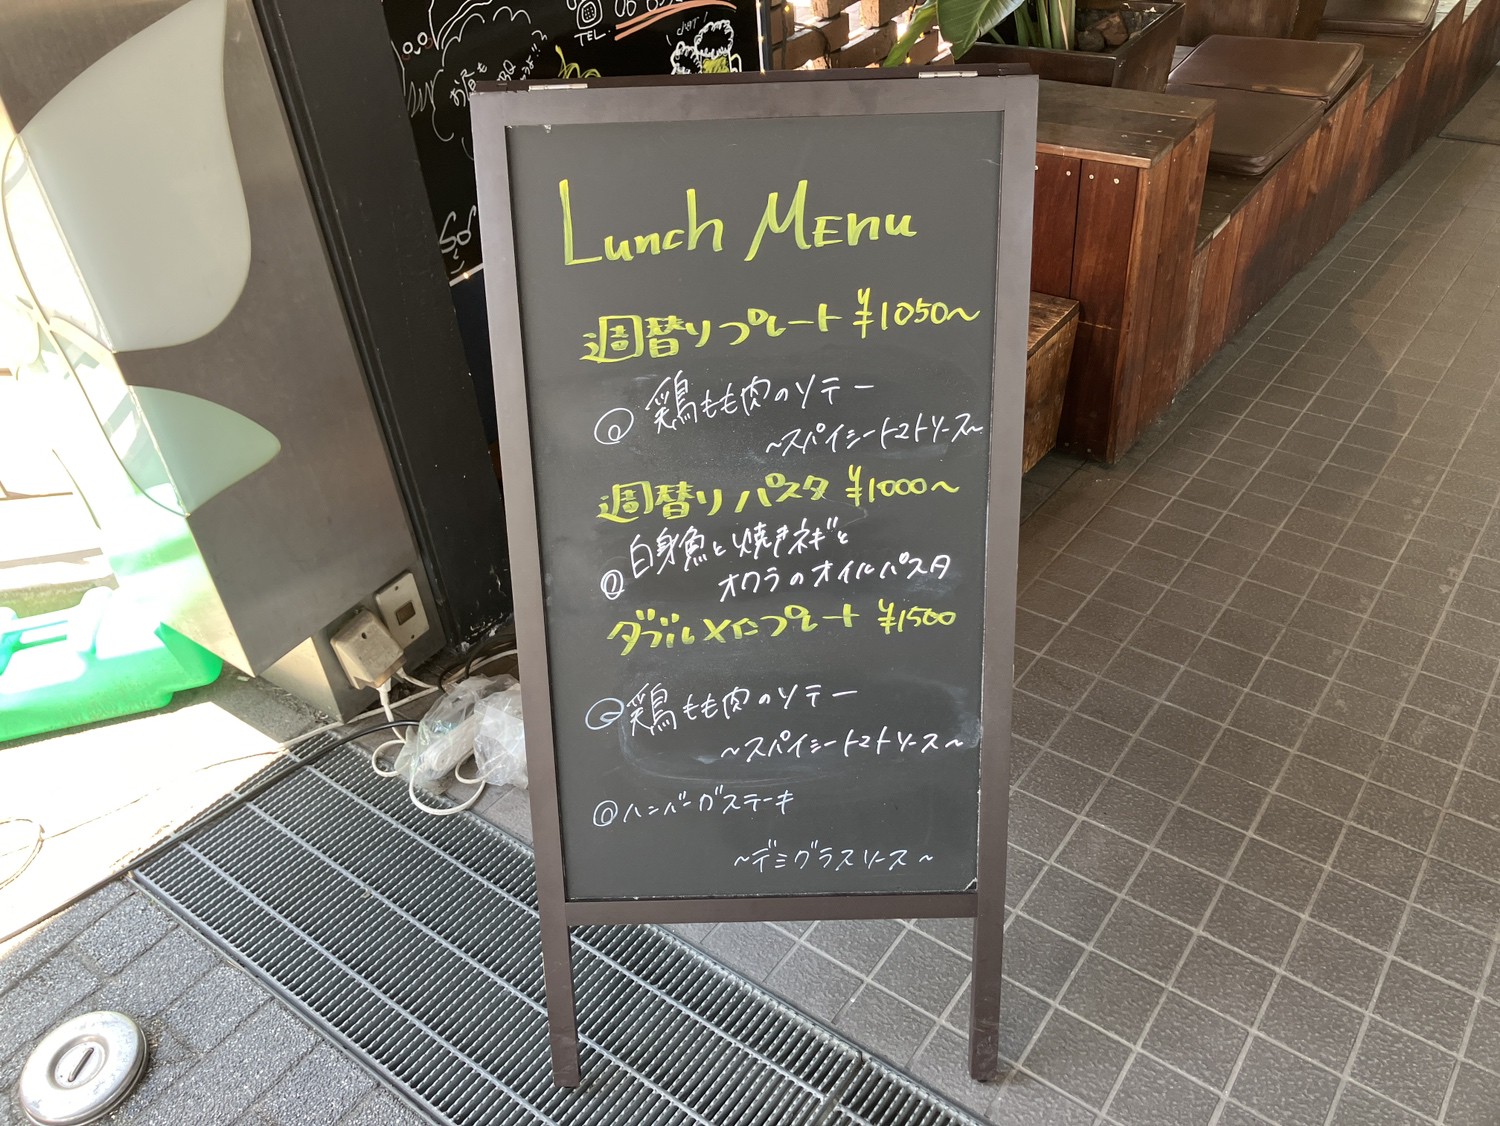 TEL.
Lunch MENU
週替りプレート ¥1050〜
鶏もも肉のソテー
〜スパイシートマトソース〜
週替りパスタ ¥1000〜
白身魚と焼きネギと
オクラのオイルパスタ
ダブルメインプレート ¥1500
鶏もも肉のソテー
〜スパイシートマトソース〜
ハンバーグステーキ
〜デミグラスソース〜